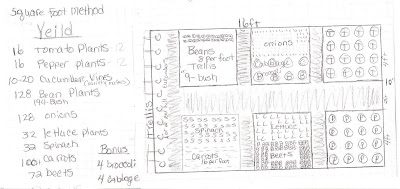 Square foot method
Veild
16 Tomato Plants - 12
16 Pepper plants - 12
10-20 Cucumber Vines
128 Bean Plants
128 onions
32 lettace plants
32 Spinach
100+ Carrots
72 beets
Bonus
4 broccoli
4 cabbage
16ft
Trellis
Beans
8 per foot
Trellis
9-bush
onions
Cabbage
Spinach
Carrots
16 per foot
Lettuce
BEETS
4ft
4ft